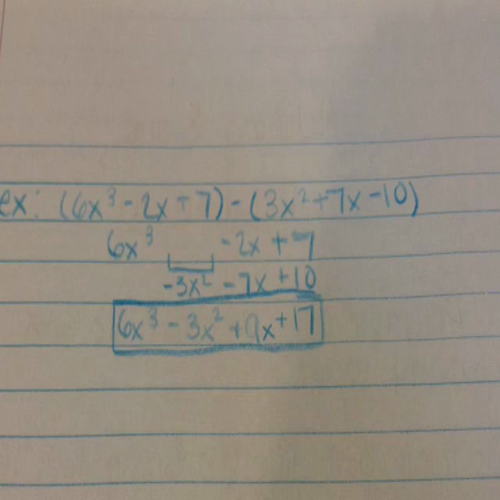 ex: (6x³ - 2x + 7) - (3x² + 7x - 10)
6x³ -2x + 7
-3x² - 7x + 10
6x³ - 3x² + 9x + 17